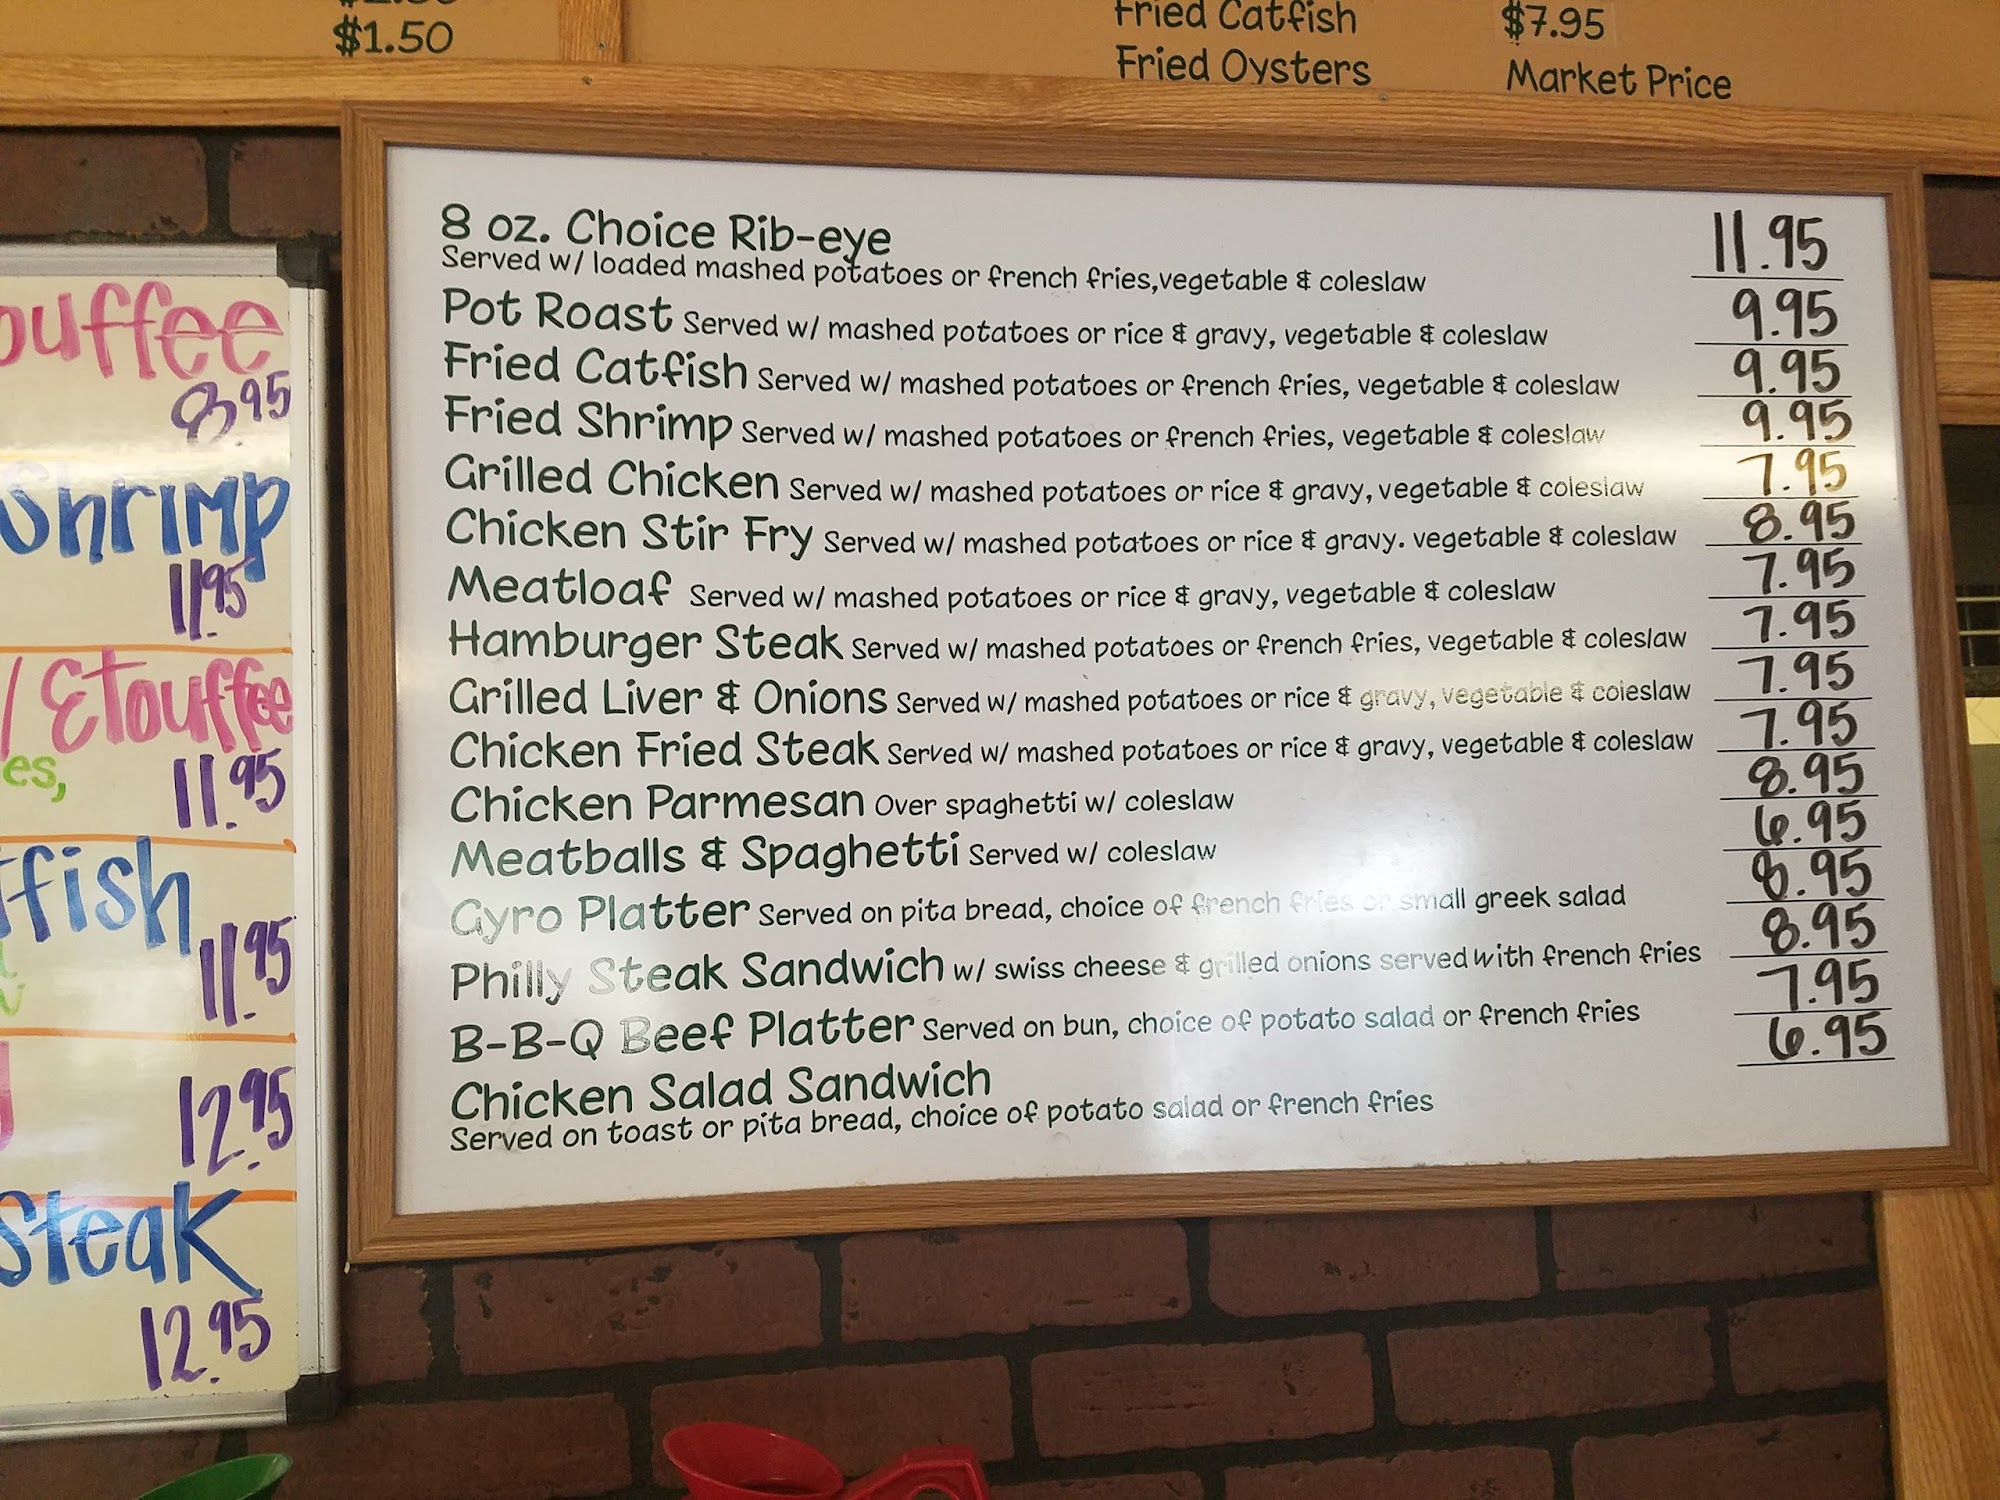 $1.50
Fried Catfish $7.95
Fried Oysters Market Price
8 oz. Choice Rib-eye 11.95
Served w/ loaded mashed potatoes or french fries,vegetable & coleslaw
Pot Roast Served w/ mashed potatoes or rice & gravy, vegetable & coleslaw 9.95
Fried Catfish Served w/ mashed potatoes or french fries, vegetable & coleslaw 9.95
Fried Shrimp Served w/ mashed potatoes or french fries, vegetable & coleslaw 9.95
Grilled Chicken Served w/ mashed potatoes or rice & gravy, vegetable & coleslaw 7.95
Chicken Stir Fry Served w/ mashed potatoes or rice & gravy. vegetable & coleslaw 8.95
Meatloaf Served w/ mashed potatoes or rice & gravy, vegetable & coleslaw 7.95
Hamburger Steak Served w/ mashed potatoes or french fries, vegetable & coleslaw 7.95
Grilled Liver & Onions Served w/ mashed potatoes or rice & gravy, vegetable & coleslaw 7.95
Chicken Fried Steak Served w/ mashed potatoes or rice & gravy, vegetable & coleslaw 7.95
Chicken Parmesan Over spaghetti w/ coleslaw 8.95
Meatballs & Spaghetti Served w/ coleslaw 6.95
Gyro Platter Served on pita bread, choice of french fries or small greek salad 8.95
Philly Steak Sandwich w/ swiss cheese & grilled onions served with french fries 8.95
B-B-Q Beef Platter Served on bun, choice of potato salad or french fries 7.95
Chicken Salad Sandwich 6.95
Served on toast or pita bread, choice of potato salad or french fries
ouffee
8.95
Shrimp
11.95
/ Etouffee
es,
11.95
tfish
11.95
12.95
Steak
12.95